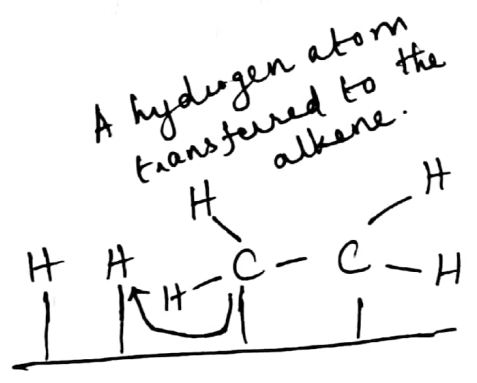 A hydrogen atom
transferred to the
alkene.
H
H
H H H C - C - H